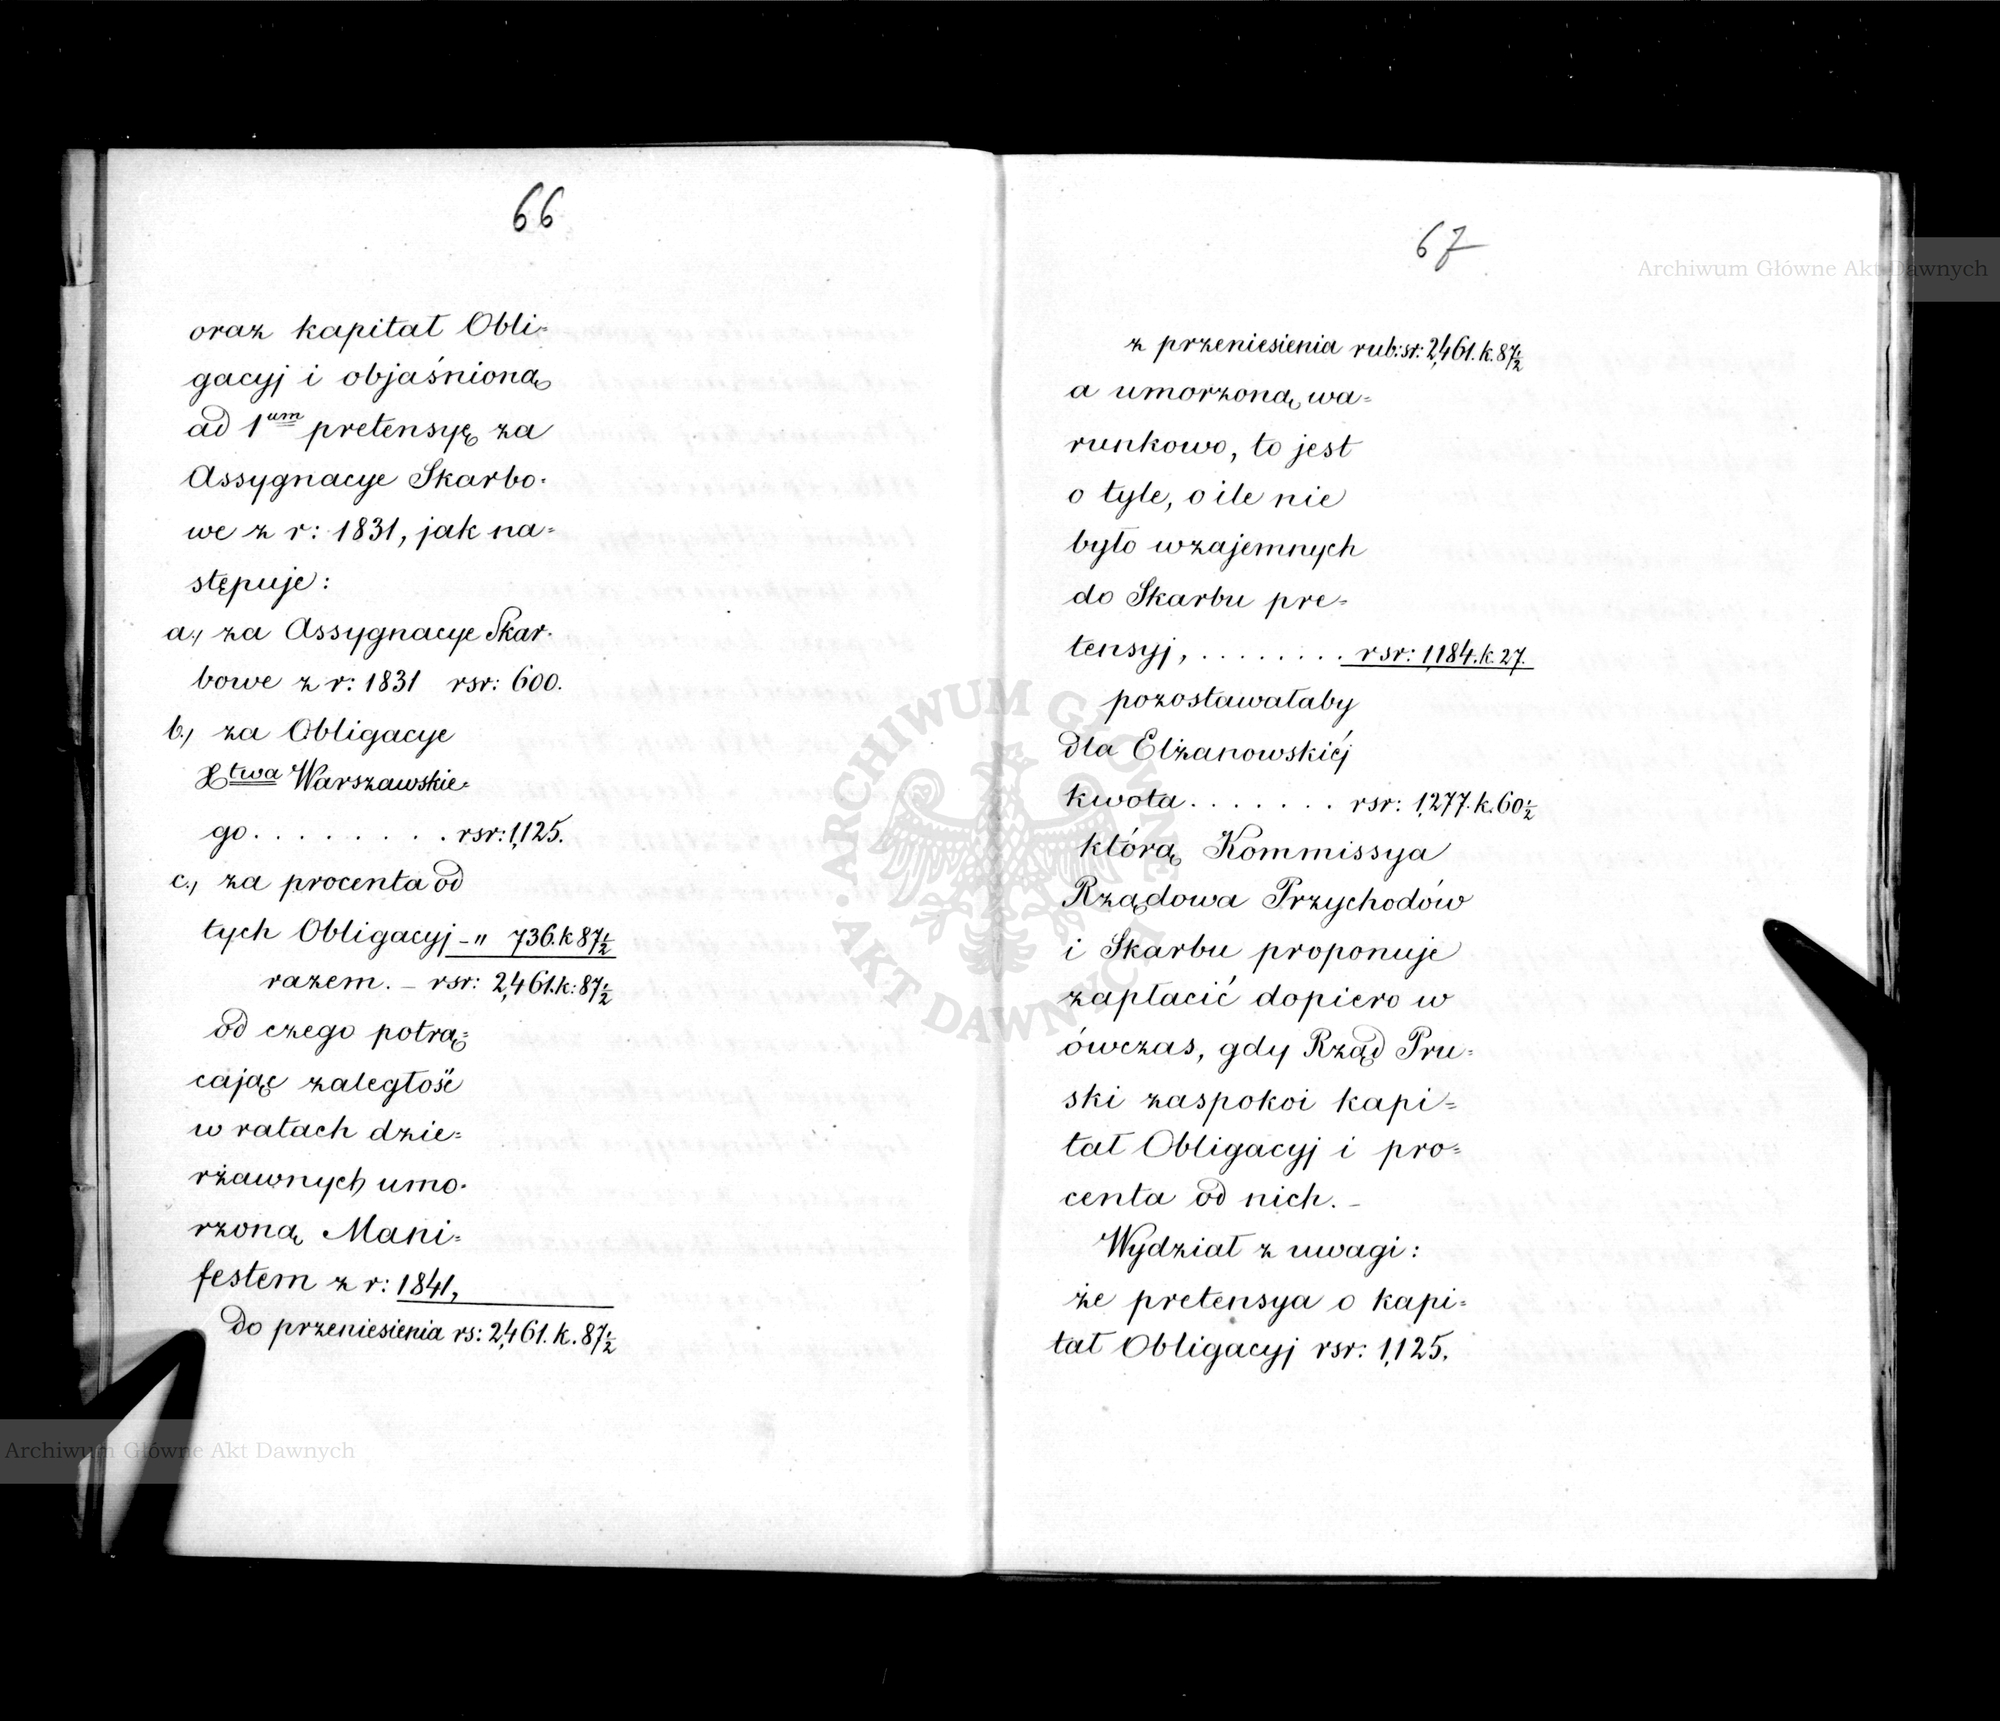 66
oraz kapitał Obli=
gacyj i objaśnioną
ad 1um pretensyę za
Assygnacye Skarbo=
we z r: 1831, jak na=
stępuje:
a., za Assygnacye Skar=
bowe z r: 1831 rsr: 600.
b., za Obligacye
Xtwa Warszawskie=
go. . . . . . . . . rsr: 1,125.
c., za procenta od
tych Obligacyj – " 736. k 87½
razem. – rsr: 2,461. k: 87½
od czego potrą=
cając zaległość
w ratach dzie=
rżawnych umo=
rzoną Mani=
festem z r: 1841,
Do przeniesienia rs: 2,461. k. 87½
67
z przeniesienia rub: sr: 2,461. k. 87½
a umorzoną wa=
runkowo, to jest
o tyle, o ile nie
było wzajemnych
do Skarbu pre=
tensyj, . . . . . . . . rsr: 1,184. k. 27.
pozostawałaby
dla Elżanowskiéj
kwota . . . . . . . rsr: 1,277. k. 60½
którą Kommissya
Rządowa Przychodów
i Skarbu proponuje
zapłacić dopiero w
ówczas, gdy Rząd Pru=
ski zaspokoi kapi=
tał Obligacyj i pro=
centa od nich. –
Wydział z uwagi:
że pretensya o kapi=
tał Obligacyj rsr: 1,125,
Archiwum Główne Akt Dawnych
Archiwum Główne Akt Dawnych
ARCHIWUM GŁÓWNE AKT DAWNYCH